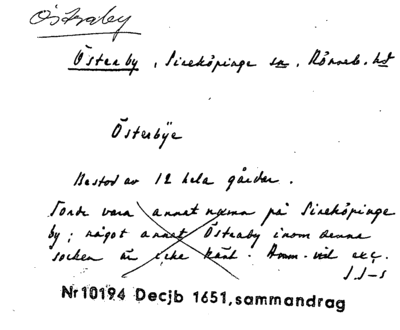 Östraby
Österby, Sireköpinge sn, Rönneb. hd
Österbÿe
Bestod av 12 hela gårdar.
Torde vara annat namn på Sireköpinge
by; något annat Österby inom denne
socken är icke känt. Anm. vid exc.
J. S-s
Nr 10194 Decjb 1651, sammandrag